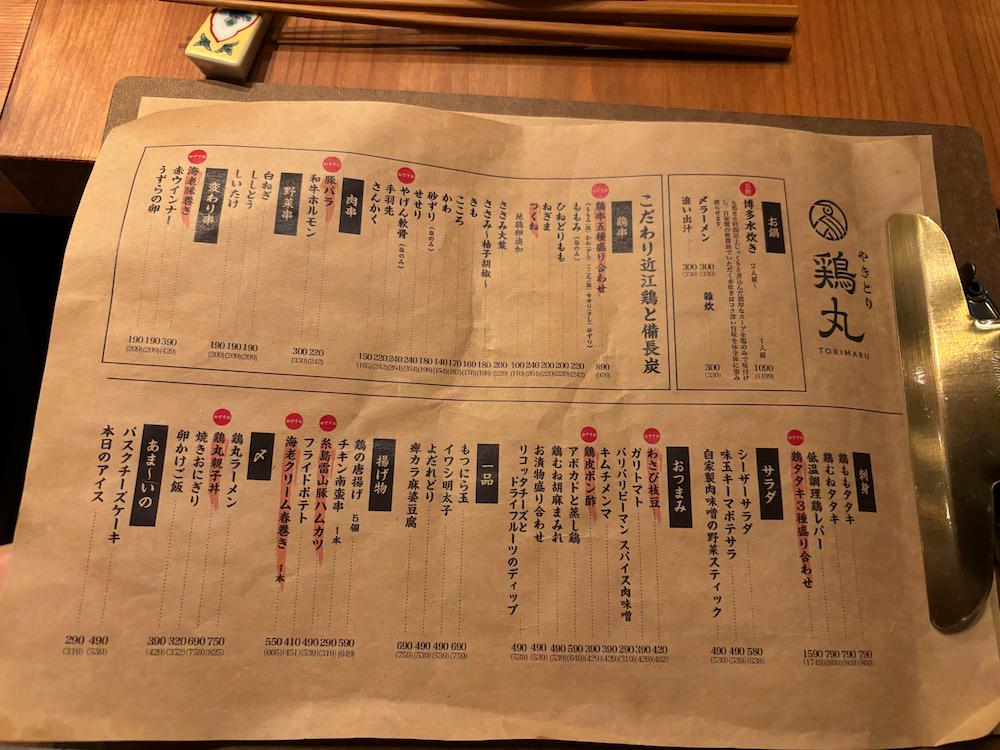 やきとり
鶏丸
TORIMARU
お鍋
名物
博多水炊き 2人前〜 1人前 1090 (1199)
丸鶏を8時間以上じっくりと煮込んだ濃厚なスープを塩のみで味付け
〆ラーメン 300 (330)
追い出汁 300 (330)
雑炊 300 (330)
こだわり近江鶏と備長炭
鶏串
おすすめ
鶏串五種盛り合わせ 890 (979)
ももみ (塩のみ) 220 (242)
ひねどりもも 200 (220)
ねぎま 200 (220)
つくね 240 (264)
地鶏卵追加 100 (110)
ささみ大葉 200 (220)
ささみ〜柚子胡椒〜 180 (198)
きも 160 (176)
こころ 170 (187)
かわ 140 (154)
砂ずり (塩のみ) 180 (198)
せせり 240 (264)
おすすめ
やげん軟骨 (塩のみ) 240 (264)
手羽先 220 (242)
さんかく 150 (165)
肉串
おすすめ
豚バラ 220 (242)
和牛ホルモン 300 (330)
野菜串
白ねぎ 190 (209)
ししとう 190 (209)
しいたけ 190 (209)
変わり串
おすすめ
海老豚巻き 390 (429)
赤ウインナー 190 (209)
うずらの卵 190 (209)
刺身
鶏ももタタキ 790 (869)
鶏むねタタキ 790 (869)
低温調理鶏レバー 790 (869)
おすすめ
鶏タタキ3種盛り合わせ 1590 (1749)
サラダ
シーザーサラダ 580 (638)
味玉キーマポテサラ 490 (539)
自家製肉味噌の野菜スティック 490 (539)
おつまみ
おすすめ
わさび枝豆 420 (462)
ガリトマト 390 (429)
バリバリピーマン スパイス肉味噌 290 (319)
キムチメンマ 390 (429)
おすすめ
鶏皮ポン酢 390 (429)
アボカドと蒸し鶏 590 (649)
鶏むね胡麻まみれ 490 (539)
お漬物盛り合わせ 490 (539)
リコッタチーズと
ドライフルーツのディップ 490 (539)
一品
もつにら玉 690 (759)
イワシ明太子 490 (539)
よだれどり 490 (539)
痺カラ麻婆豆腐 690 (759)
揚げ物
鶏の唐揚げ 5個 590 (649)
チキン南蛮串 1本 290 (319)
おすすめ
糸島雷山豚ハムカツ 490 (539)
フライドポテト 410 (451)
おすすめ
海老クリーム春巻き 1本 550 (605)
〆
鶏丸ラーメン 750 (825)
おすすめ
鶏丸親子丼 690 (759)
焼きおにぎり 320 (352)
卵かけご飯 390 (429)
あま〜いの
バスクチーズケーキ 490 (539)
本日のアイス 290 (319)